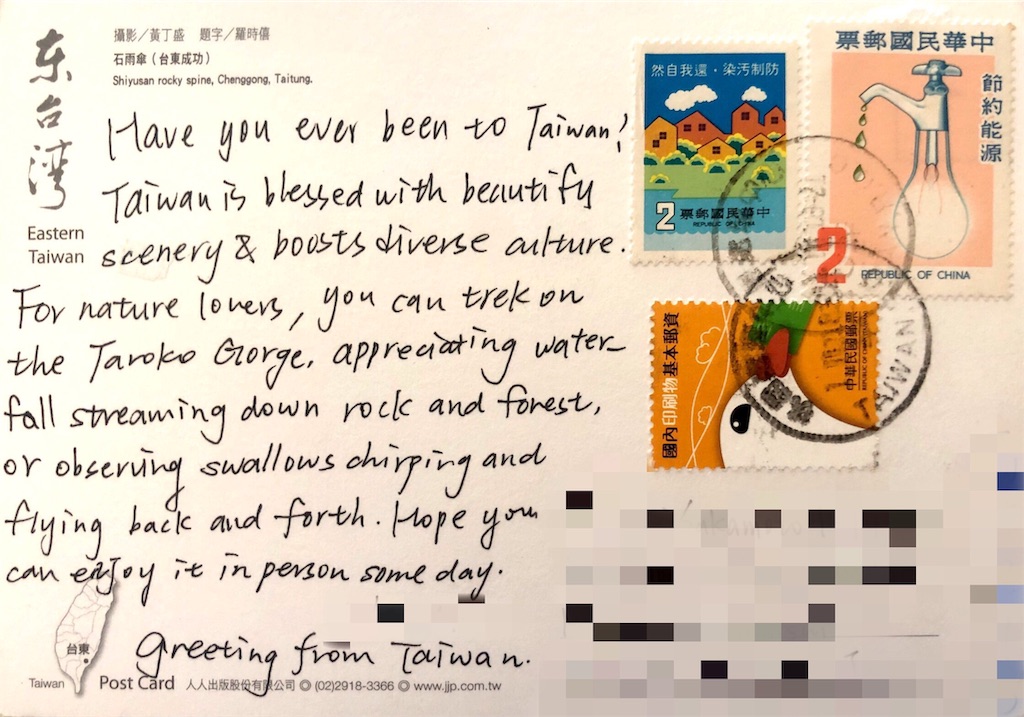 东台湾
Eastern
Taiwan
攝影／黃丁盛 題字／羅時僖
石雨傘（台東成功）
Shiyusan rocky spine, Chenggong, Taitung.
Have you ever been to Taiwan?
Taiwan is blessed with beautify
scenery & boosts diverse culture.
For nature lovers, you can trek on
the Taroko Gorge, appreciating water-
fall streaming down rock and forest,
or observing swallows chirping and
flying back and forth. Hope you
can enjoy it in person some day.
Greeting from Taiwan.
台東
Taiwan
Post Card 人人出版股份有限公司 ◎ (02)2918-3366 ◎ www.jjp.com.tw
然自我還・染汚制防
2 票郵國民華中
REPUBLIC OF CHINA
票郵國民華中
節約能源
2
REPUBLIC OF CHINA
國內印刷物基本郵資
中華民國郵票
REPUBLIC OF CHINA
TAIWAN